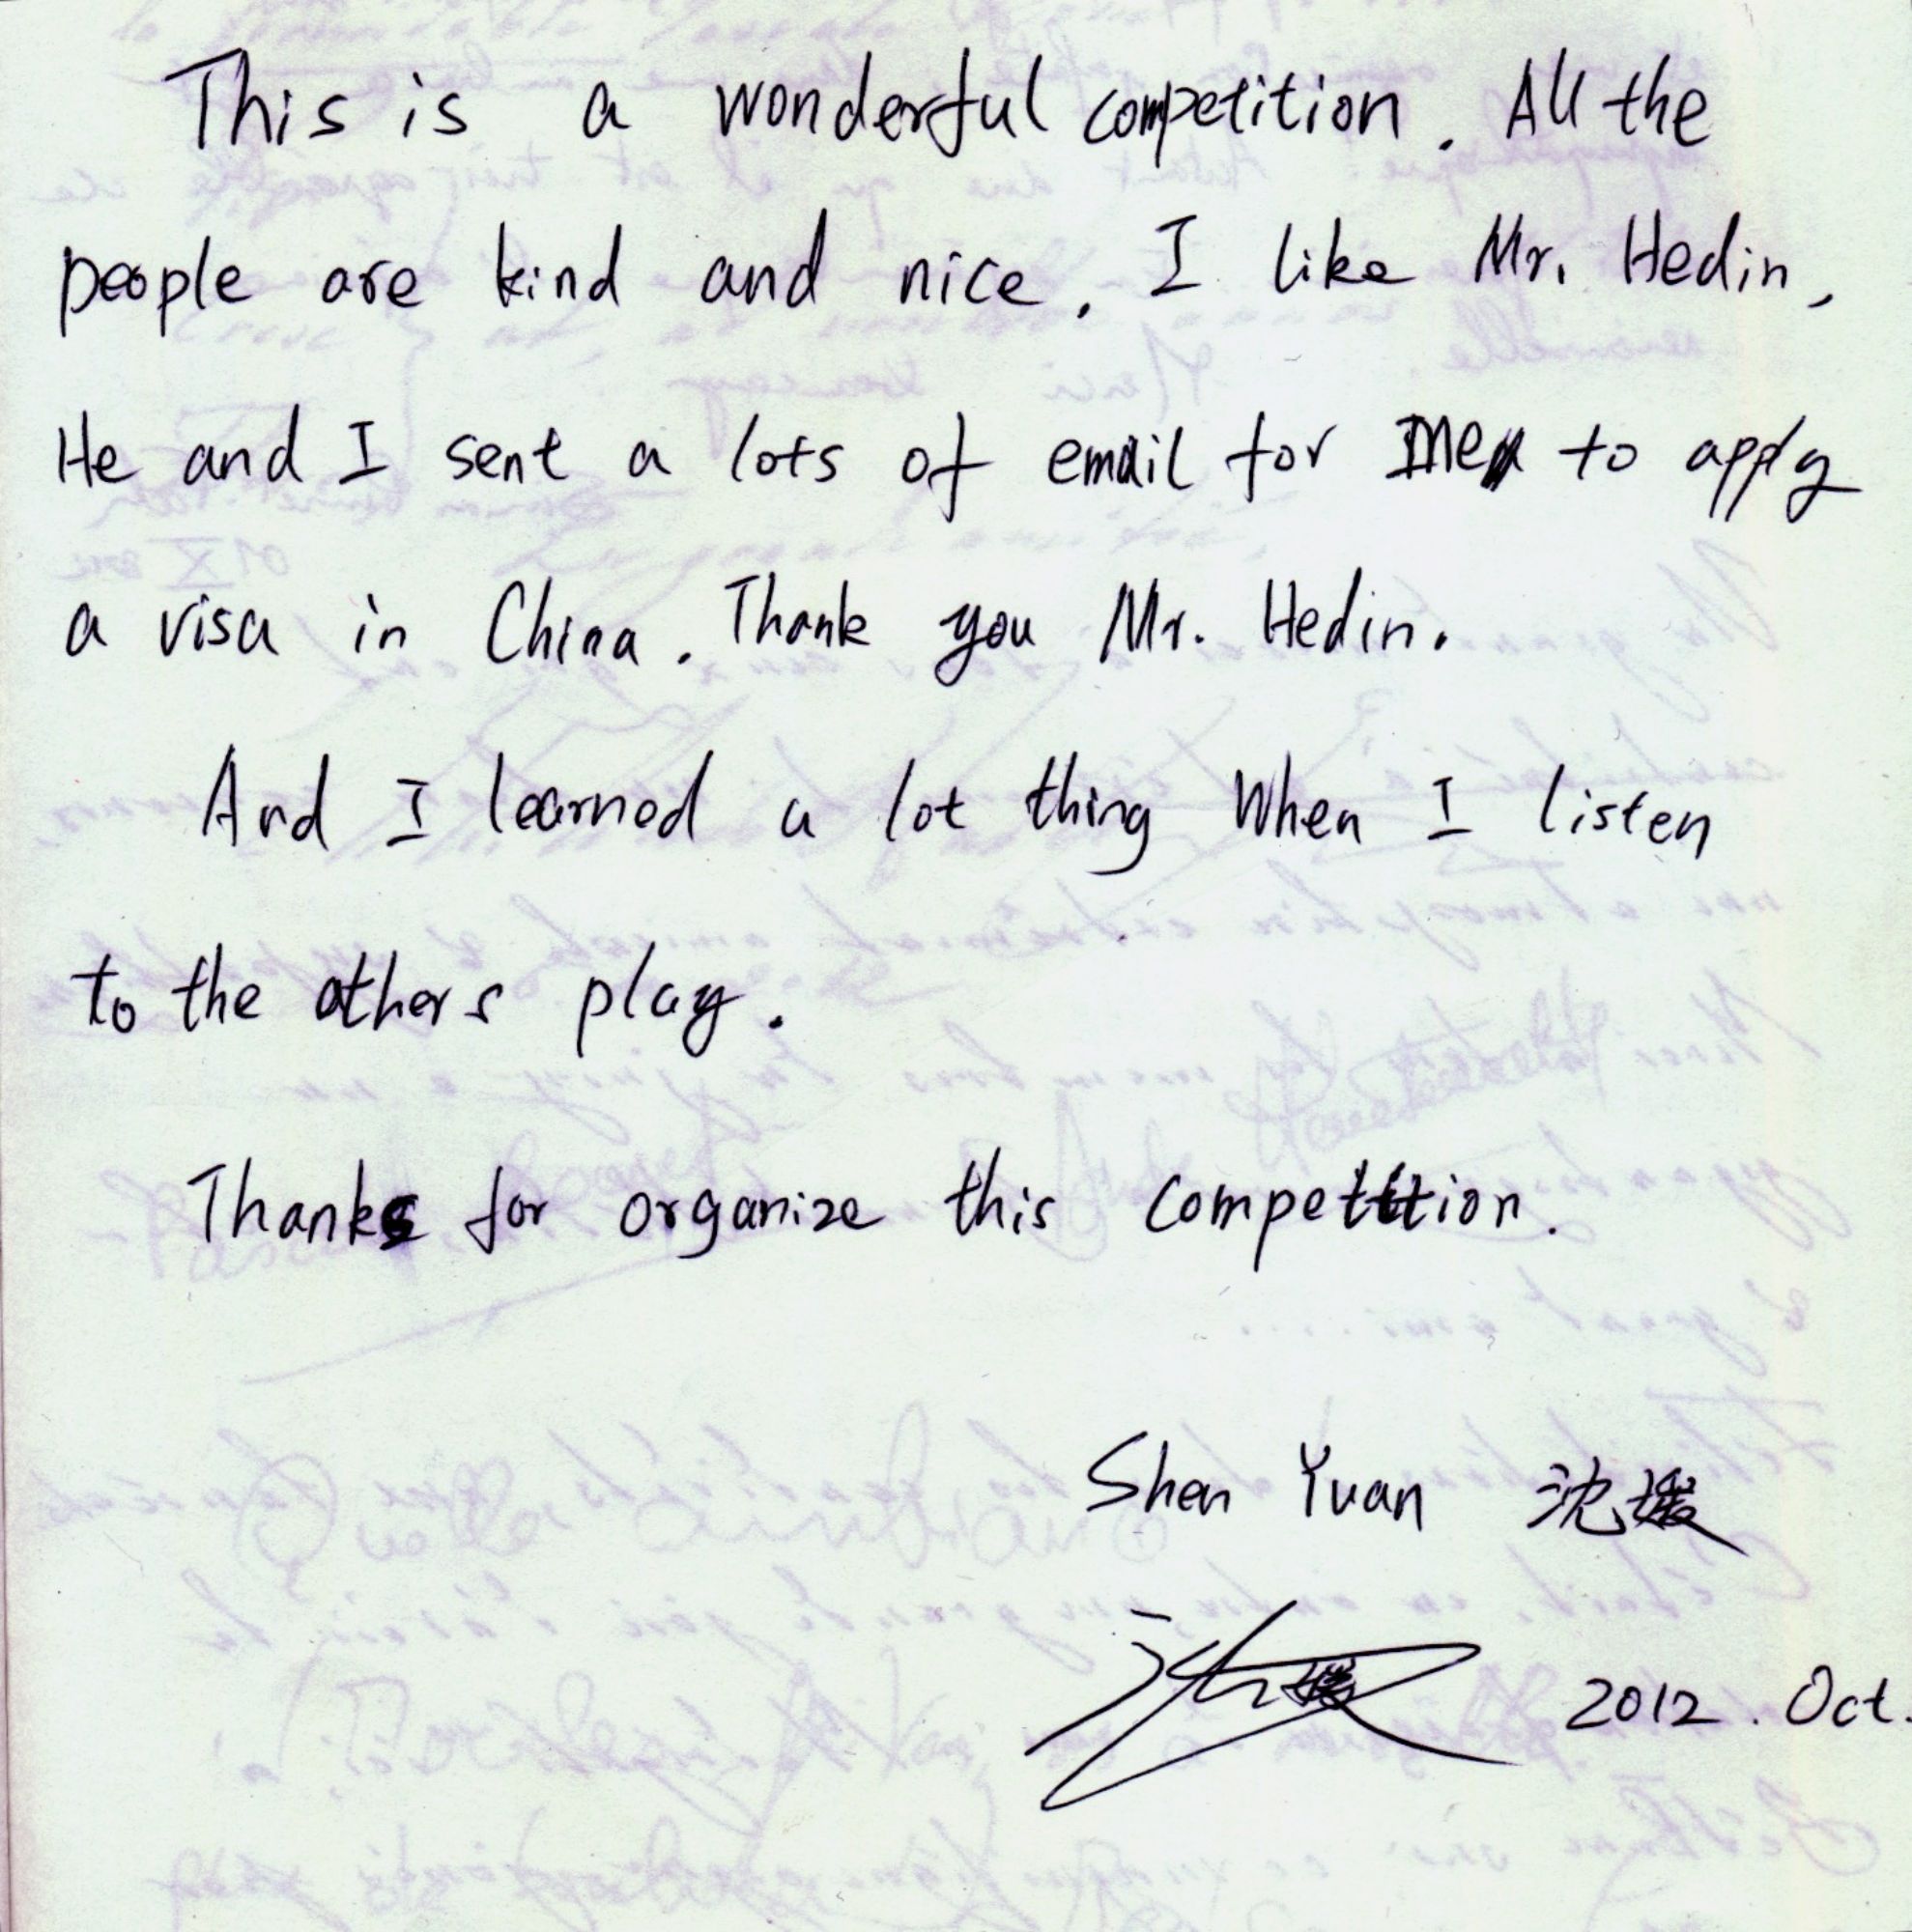 This is a wonderful competition. All the
people are kind and nice. I like Mr. Hedin,
He and I sent a lots of email for me to apply
a visa in China. Thank you Mr. Hedin.
And I learned a lot thing When I listen
to the others play.
Thanks for organize this competition.
Shen Yuan 沈媛
沈媛 2012. Oct.